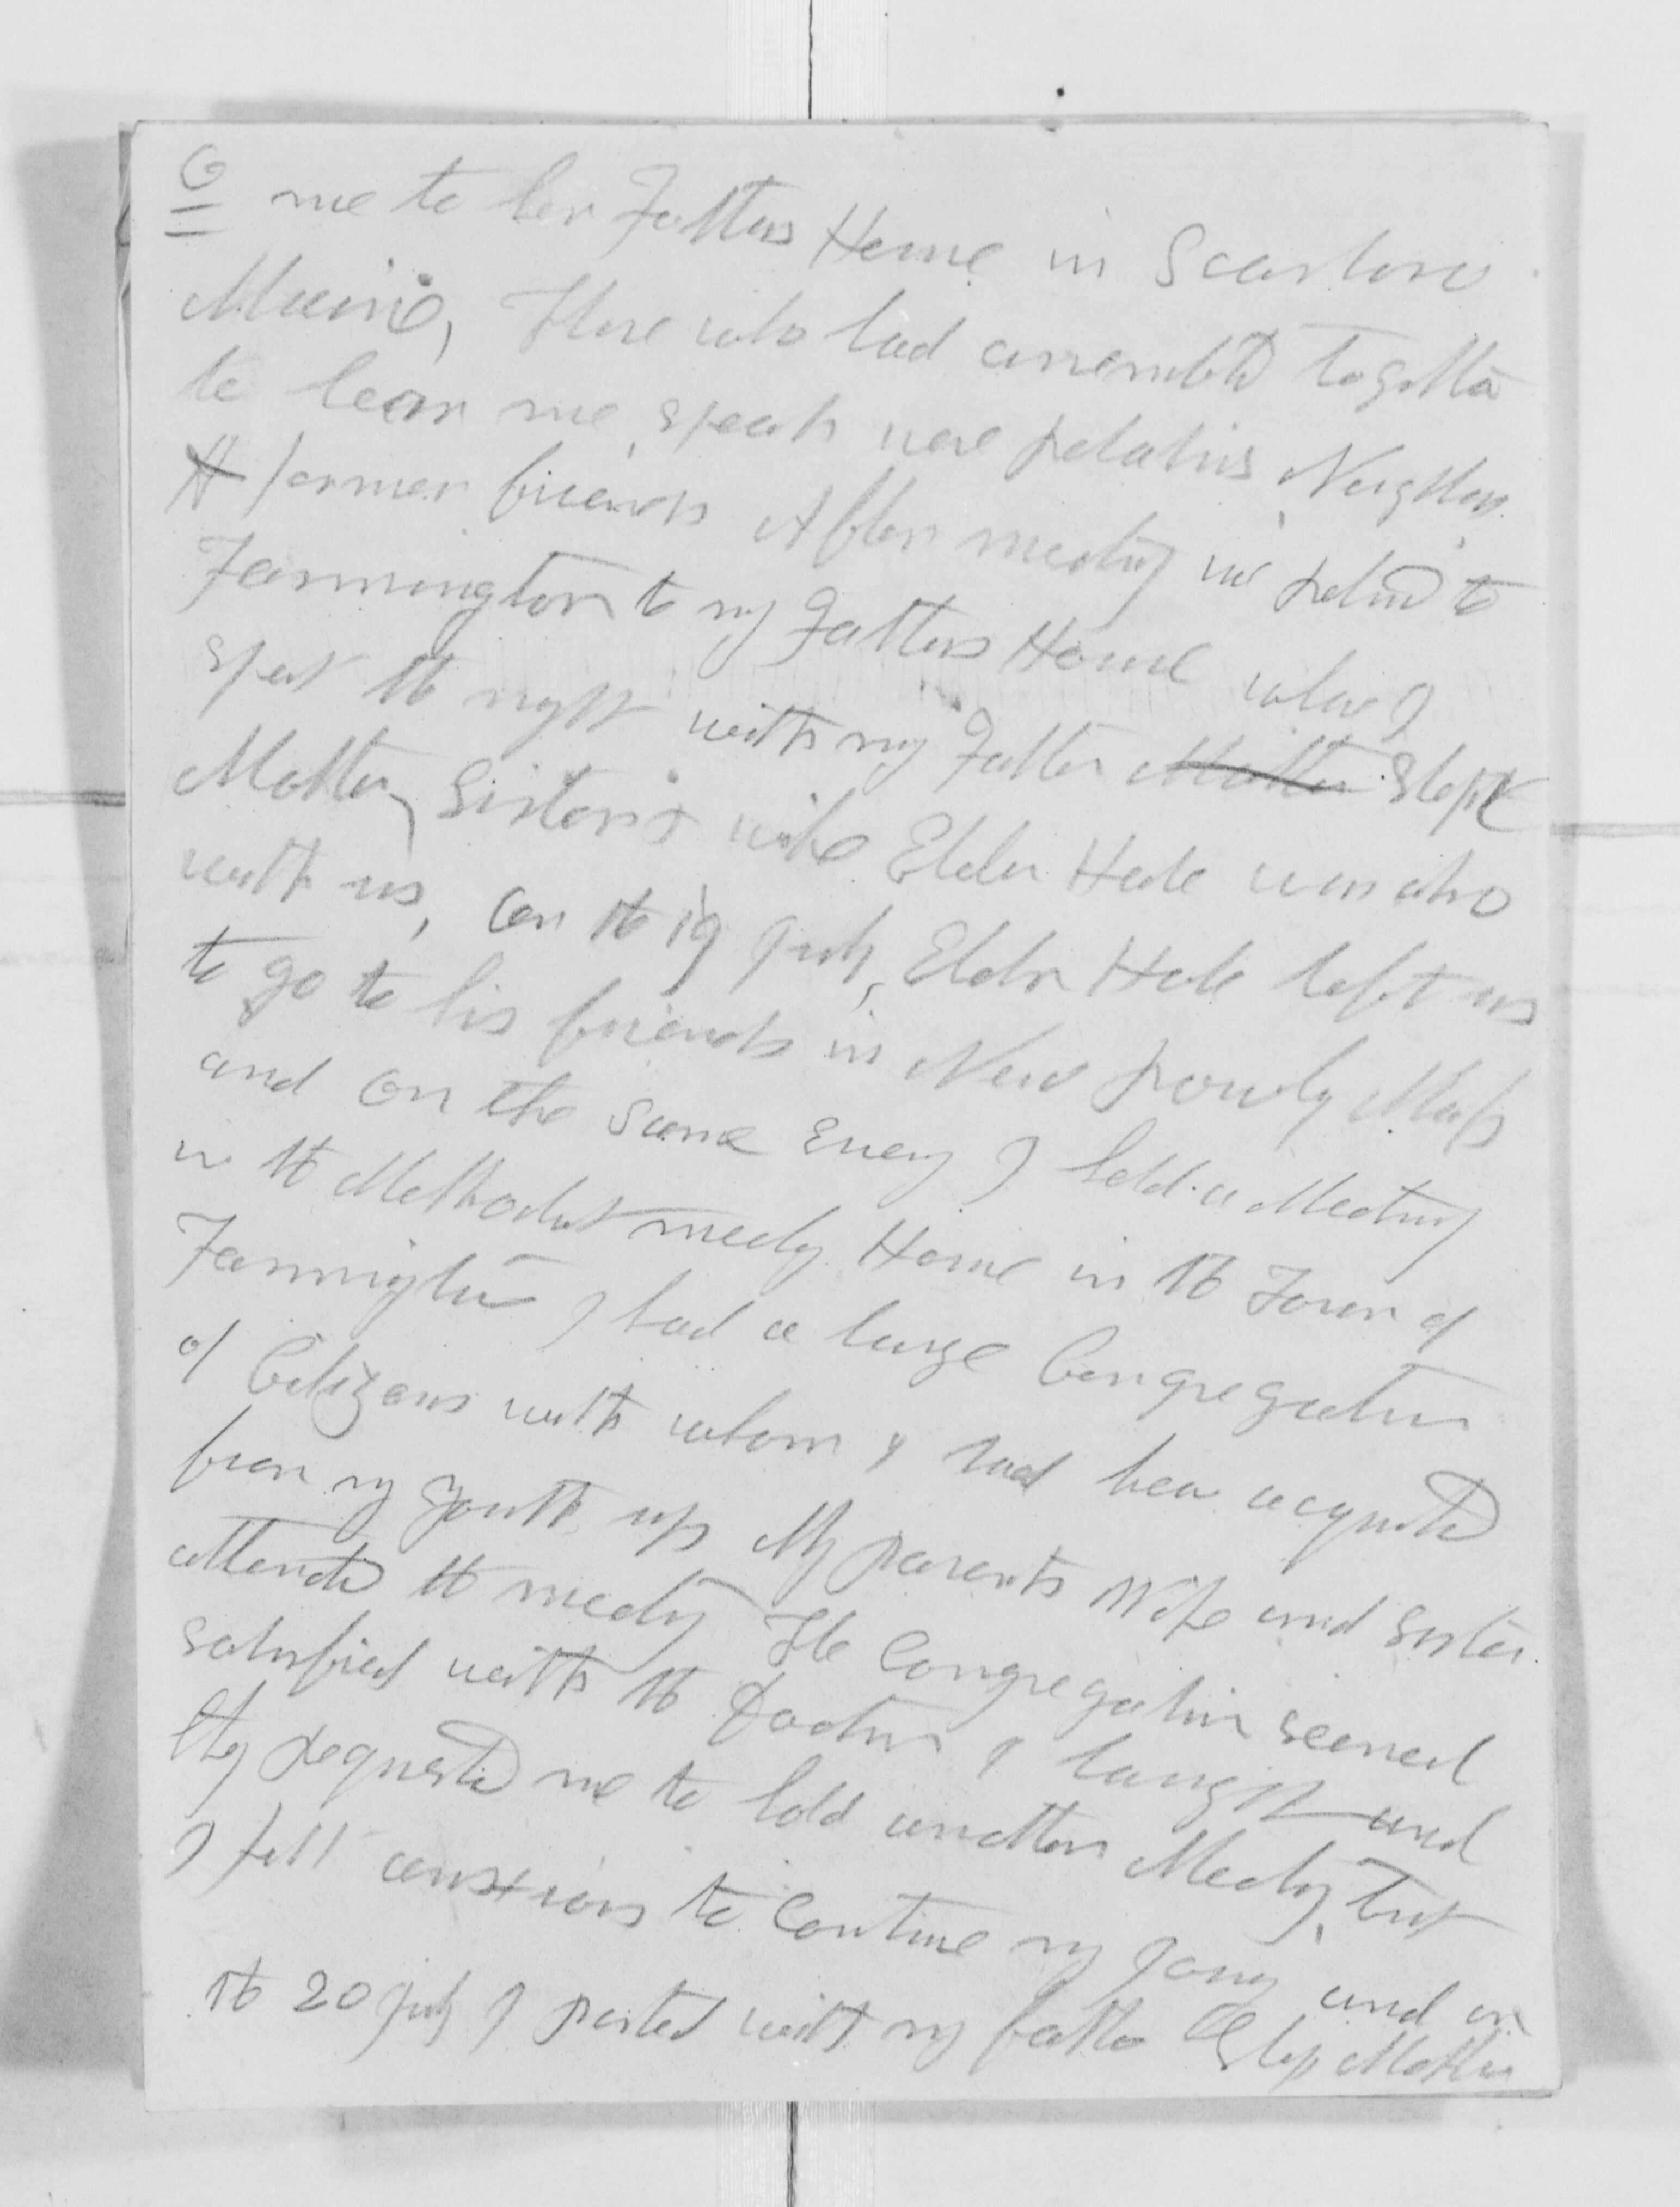 6 me to her Fathers Home in Scarboro
Maine, Those who had assembled together
to hear me speak were relatives, Neighbors
& former friends After meeting we retur[n]d to
Farmington to my Fathers House where I
spent the night with my Father Mother Step
Mother, Sister & wife Elder Hale was also
with us, On the 19 July, Elder Hale left us
to go to his friends in New Rowly Mass
and on the same Eveng I held a Meeting
in the Methodist meetg House in the Town of
Farmington I had a large Congregation
of Citizens with whom I had been acquainted
from my youth up My parents Wife and Sister
attended the meeting The Congregation seemed
satisfied with the Doctrin I taught and
they requested me to hold another Meeting, but
I felt anxious to Continue my jony and on
the 20 July I parted with my father Step Mother